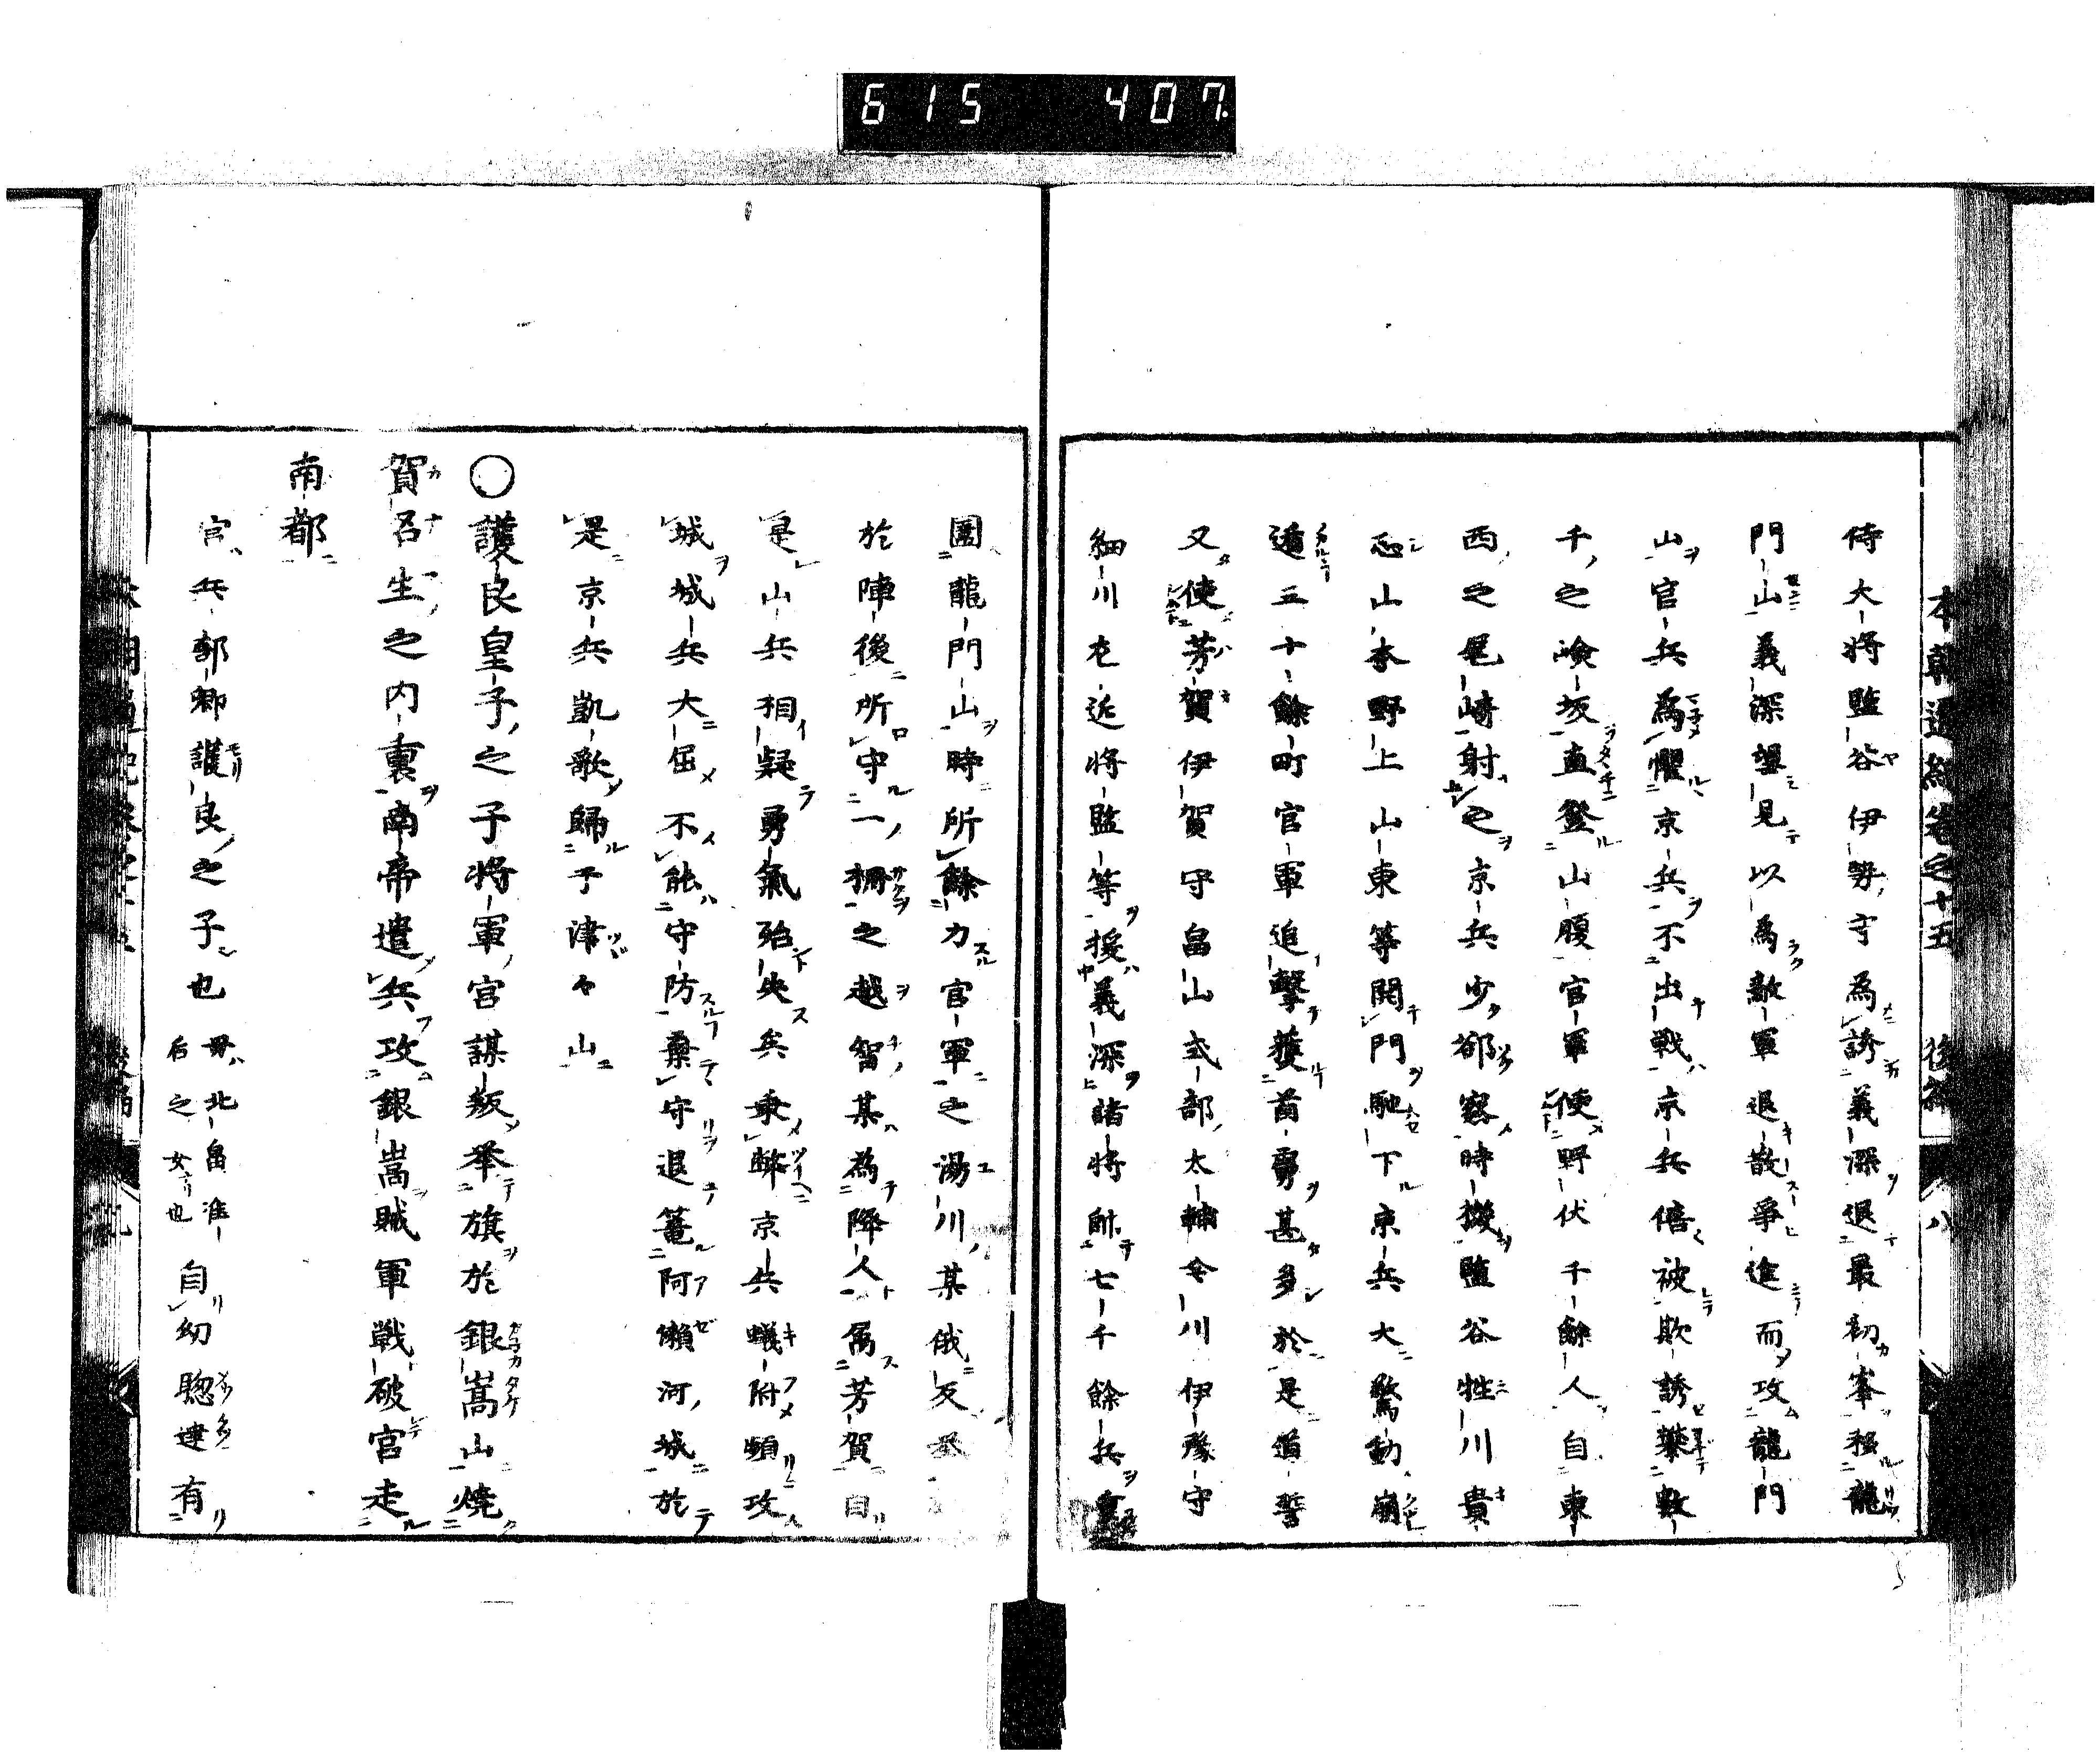 615 407.
本朝通紀卷之十五 後編 八
侍大将監谷伊勢守為誘義深退最初峯移龍
門山義深望見以為敵軍退散爭進而攻龍門
山官兵為懼京兵不出戦京兵倍被欺誘棄數
千之嶮坂直登山腹官軍使野伏千餘人自東
西之尾﨑射之京兵少郤察時機監谷牲川貴
志山本野上山東等開門馳下京兵大驚動崩
遁五十餘町官軍追擊獲首勇甚多於是道誓
又使芳賀伊賀守畠山式部太輔今川伊豫守
細川左近将監等援義深諸将帥七千餘兵
圍龍門山時所餘力官軍之湯川某俄反
於陣後所守一柵之越智某為降人属芳賀自
是山兵相疑勇氣殆失兵乗弊京兵蟻附頻攻
城城兵大屈不能守防棄守退篭阿瀬河城於
是京兵凱歌歸于津々山
○護良皇子之子将軍宮謀叛举旗於銀嵩山燒
賀名生之内裏南帝遣兵攻銀嵩賊軍戦破宮走
南都
宮兵部卿護良之子也 母北畠准后之女也 自幼聰建有